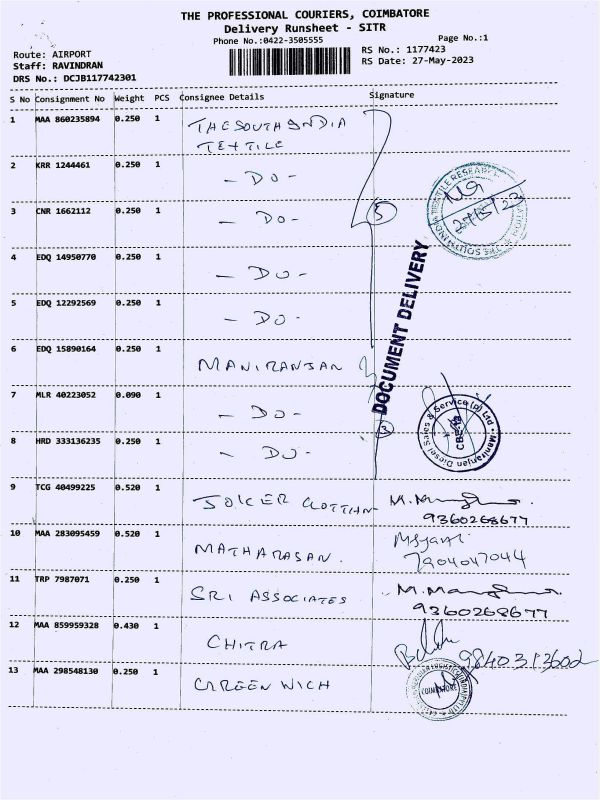 THE PROFESSIONAL COURIERS, COIMBATORE
Delivery Runsheet - SITR
Phone No.:0422-3505555
Page No.:1
Route: AIRPORT
RS No.: 1177423
Staff: RAVINDRAN
RS Date: 27-May-2023
DRS No.: DCJB117742301
S No Consignment No Weight PCS Consignee Details Signature
1 MAA 860235894 0.250 1 THE SOUTH INDIA
TEXTILE
2 KRR 1244461 0.250 1 - DO -
3 CNR 1662112 0.250 1 - DO -
5
27/5/23
4 EDQ 14950770 0.250 1 - DO -
5 EDQ 12292569 0.250 1 - DO -
DOCUMENT DELIVERY
6 EDQ 15890164 0.250 1 MANIRANJAN
7 MLR 40223052 0.090 1 - DO -
8 HRD 333136235 0.250 1 - DO -
3
Maniranjan Diesel Sales & Service (P) Ltd
9 TCG 40499225 0.520 1 JOKER CLOTTHIN
9360268677
10 MAA 283095459 0.520 1 MATHARASAN.
7904047044
11 TRP 7987071 0.250 1 SRI ASSOCIATES
9360268677
12 MAA 859959328 0.430 1 CHITRA
9840313602
13 MAA 298548130 0.250 1 GREEN WICH
COIMBATORE